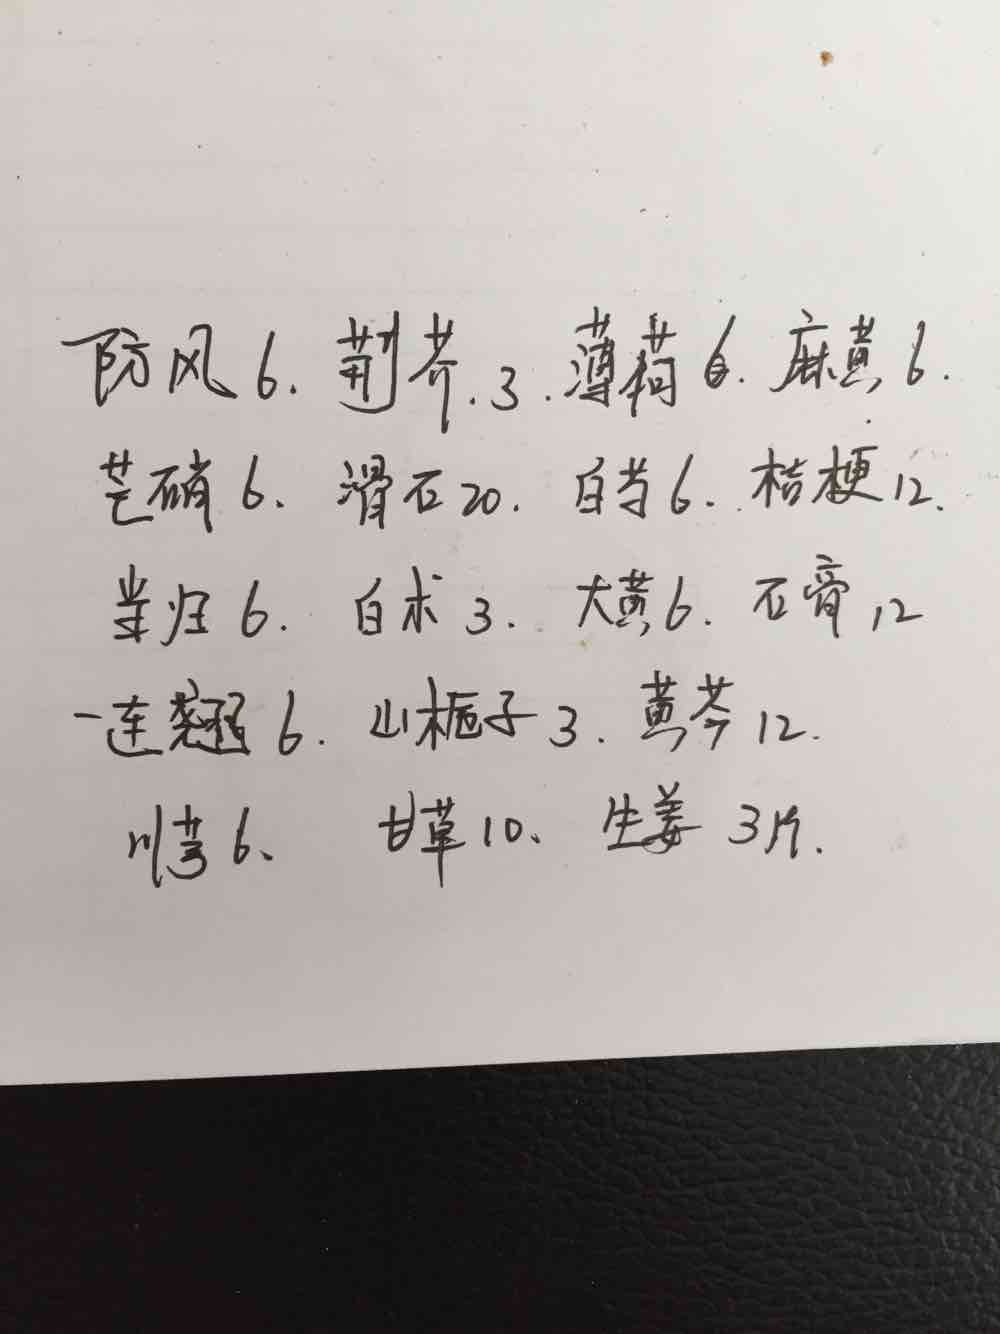 防风6. 荆芥.3. 薄荷6. 麻黄6.
芒硝6. 滑石20. 白芍6. 桔梗12.
当归6. 白术3. 大黄6. 石膏12
连翘6. 山栀子3. 黄芩12.
川芎6、 甘草10、 生姜3片.